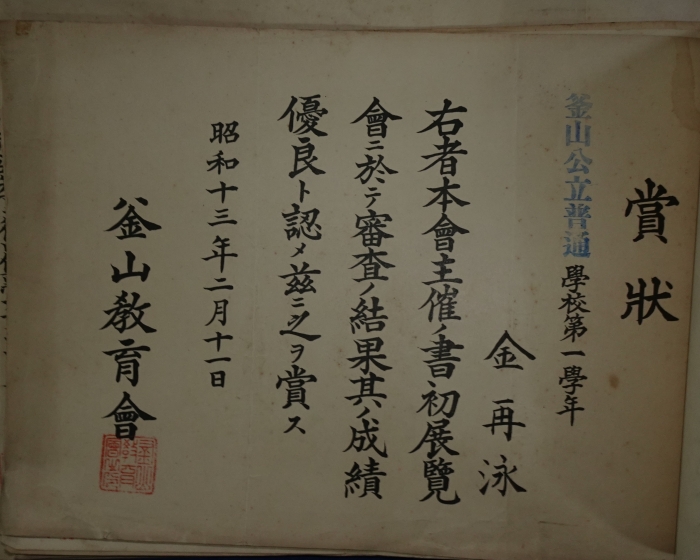 賞狀
釜山公立普通學校第一學年
金再泳
右者本會主催ノ書初展覽
會ニ於テ審査ノ結果其ノ成績
優良ト認メ茲ニ之ヲ賞ス
昭和十三年二月十一日
釜山教育會